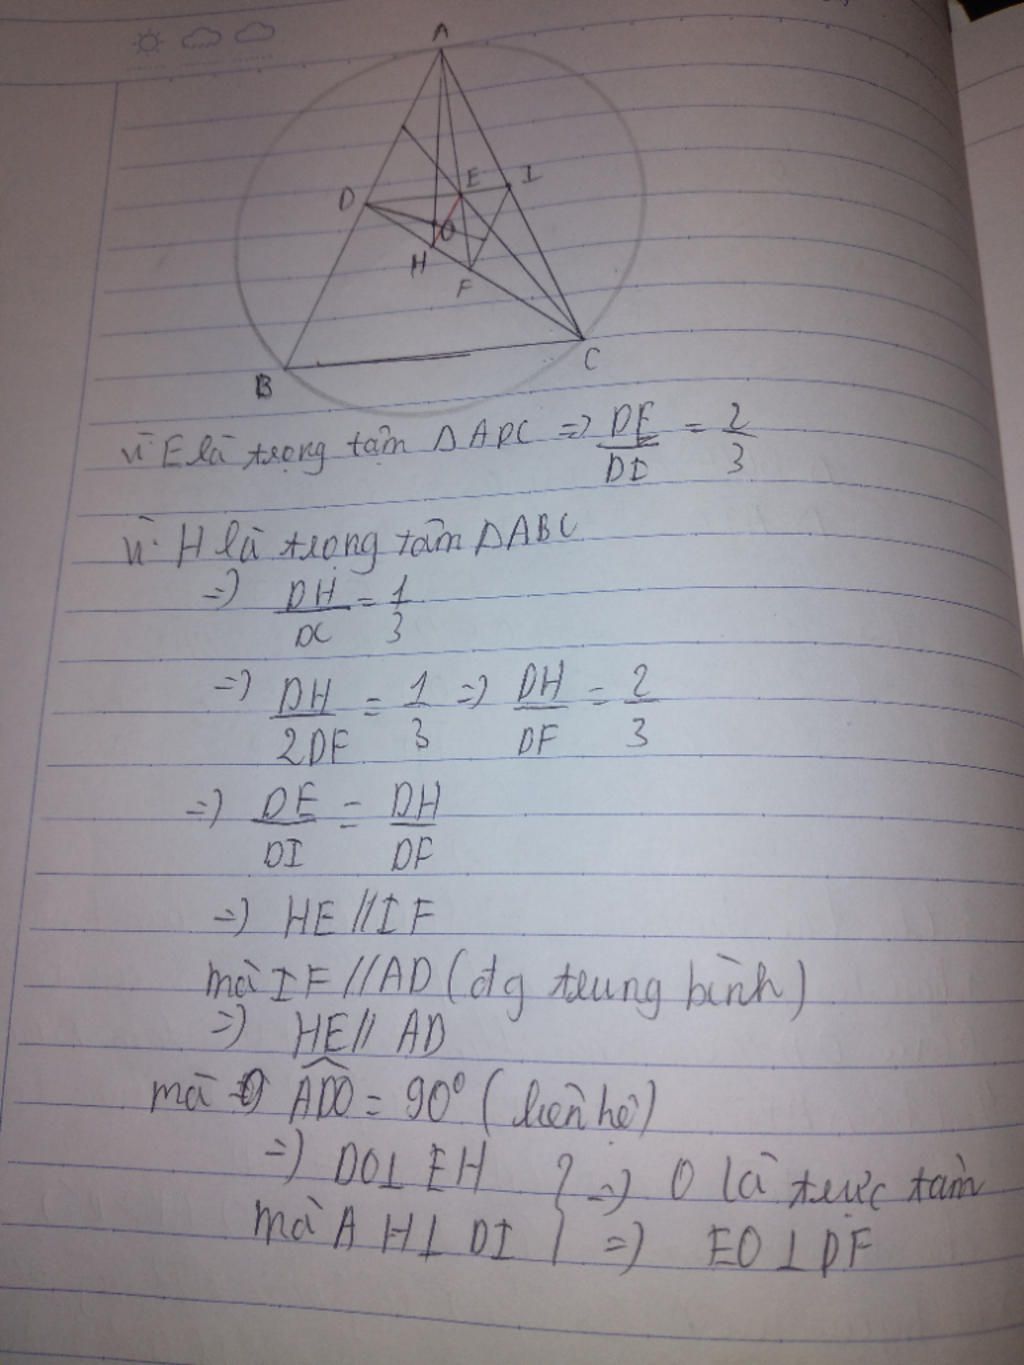 A
D
E
I
O
H
F
B
C
vì E là trọng tâm ΔADC => DE/DI = 2/3
vì H là trọng tâm ΔABC
=> DH/DC = 1/3
=> DH/2DF = 1/3 => DH/DF = 2/3
=> DE/DI = DH/DF
=> HE // IF
mà IF // AD (đg trung bình)
=> HE // AD
mà ADO = 90° (liên hệ)
=> DO ⊥ EH
mà AH ⊥ DI } => O là trực tâm
=> EO ⊥ DF